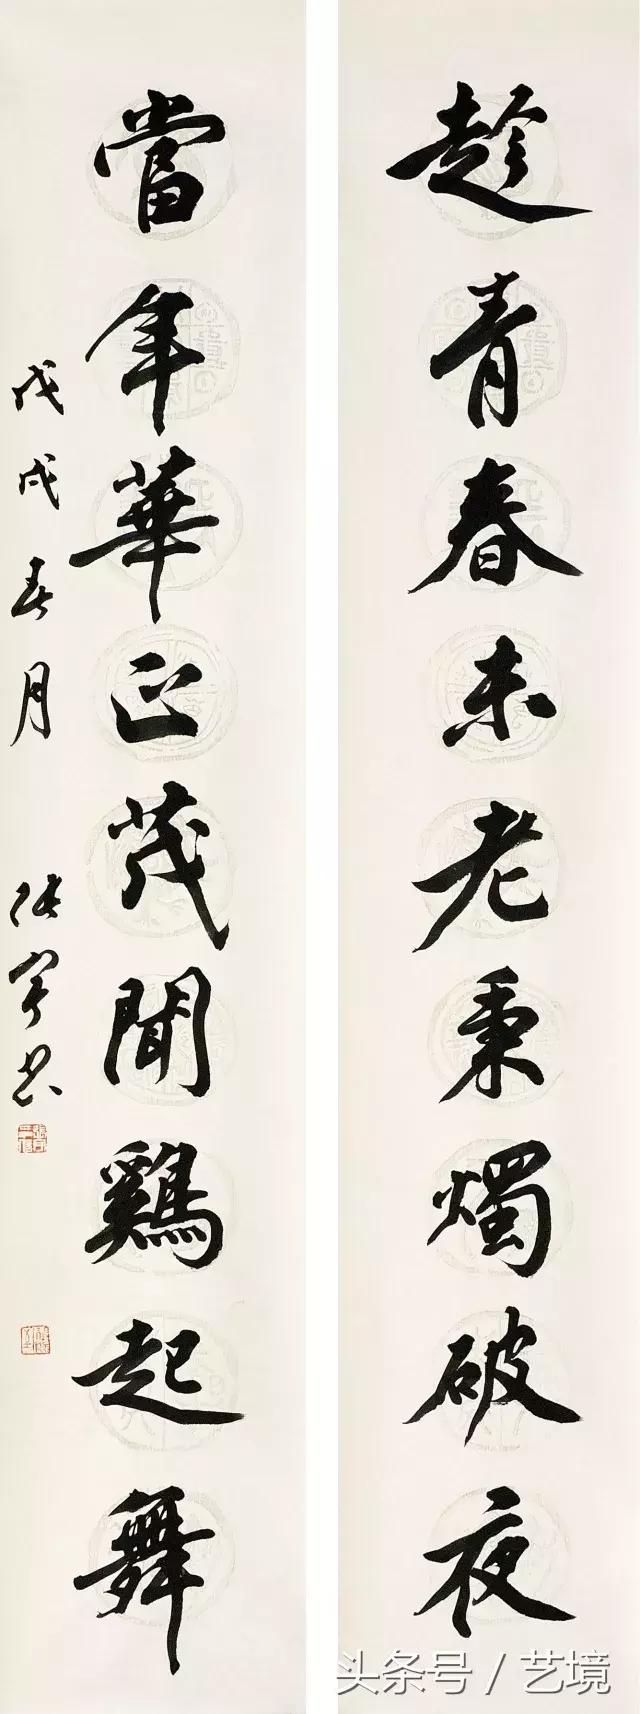 趁青春未老秉燭破夜
當年華正茂聞鷄起舞
戊戌春月 張寧書
头条号 / 艺境